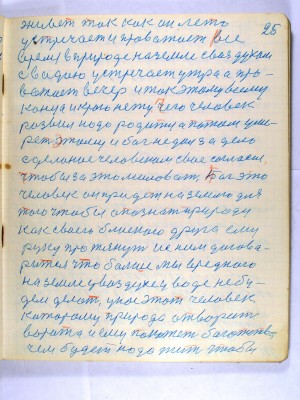 26
живет так как он лето
устречает и проважает все
время в природе на земле сваз духом
с вадою устречает утра а про-
важает вечер и так этому всему
конца и краю нету чего человек
развил надо родится а патом уме-
рет этому и баг не дал за дело
сделаное человеком свае согласи
чтобы за это миловать баг это
человек он придет на землю для
того чтобы апознат природу
как своего близкого друга ему
руку протянут и с ним догова-
рится что больше мы вредного
на земле у воздухе у воде не бу-
дем делат, у нас этот человек
каторому природа атворит
варата и ему поможет багатства
чем будет надо жит чтобы